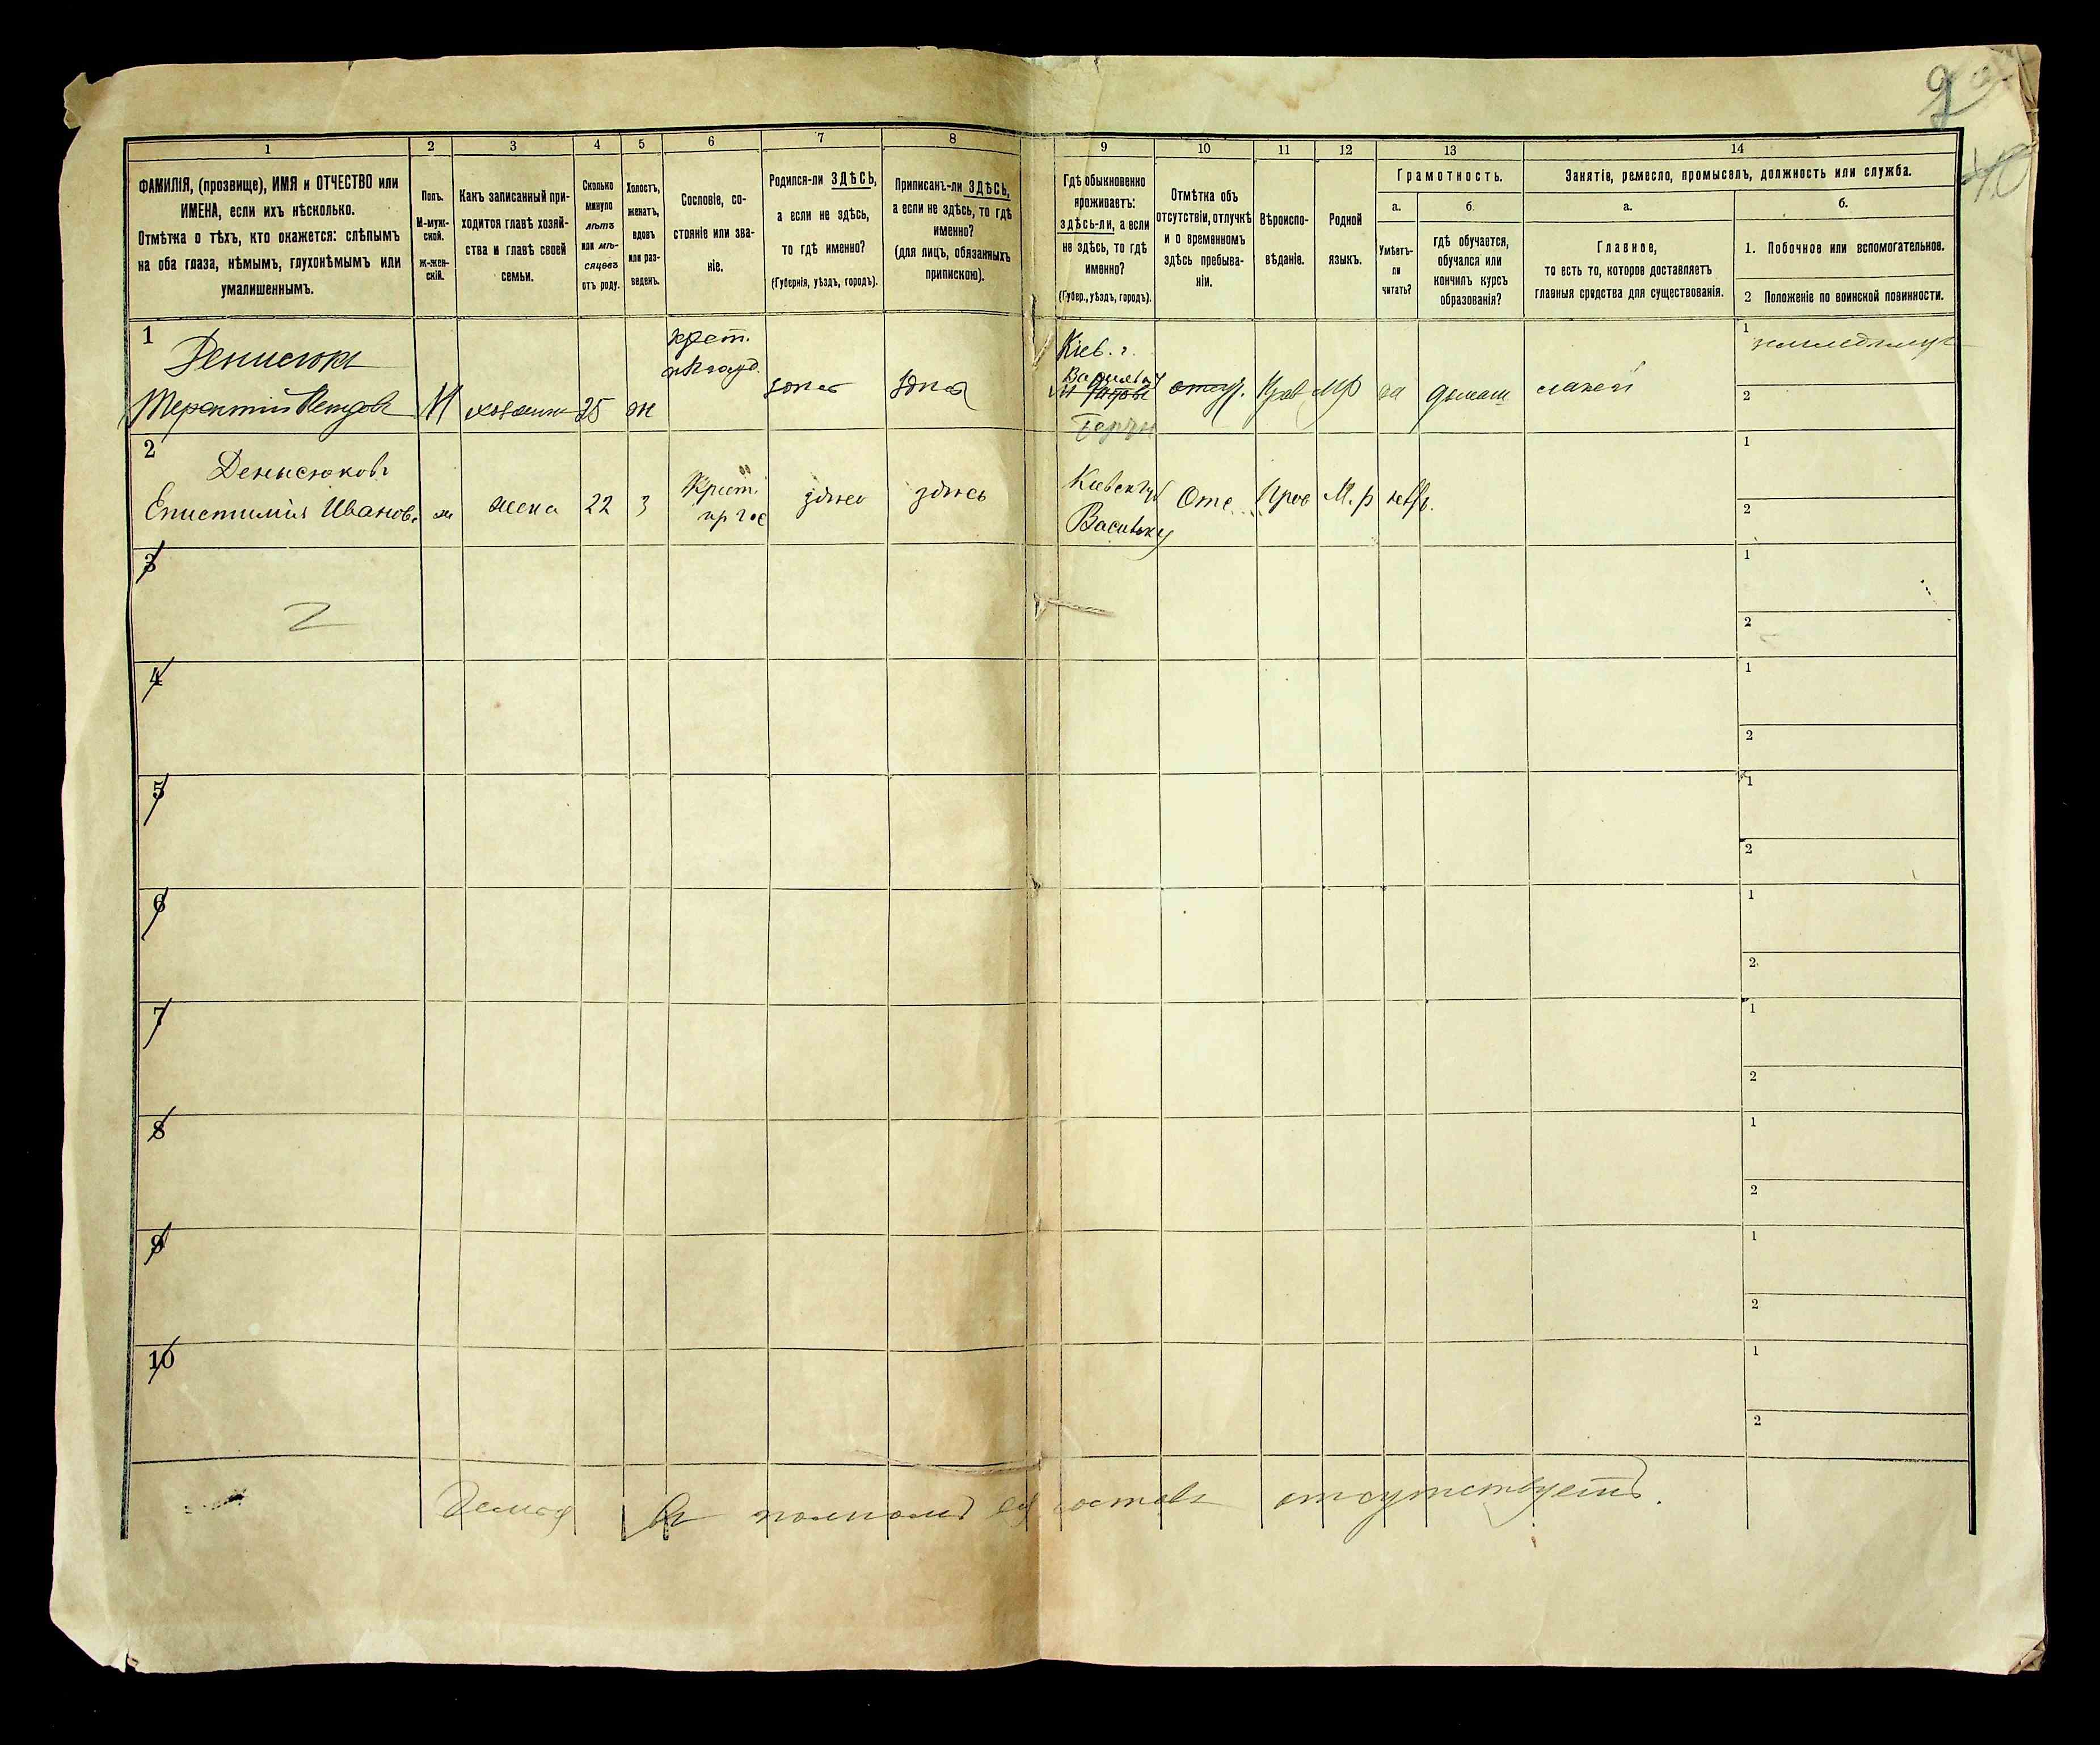 1
2
3
4
5
6
7
8
9
10
11
12
13
14
ФАМИЛІЯ, (прозвище), ИМЯ и ОТЧЕСТВО или
ИМЕНА, если ихъ нѣсколько.
Отмѣтка о тѣхъ, кто окажется: слѣпымъ
на оба глаза, нѣмымъ, глухонѣмымъ или
умалишеннымъ.
Полъ.
М-муж-
ской.
ж-жен-
скій.
Какъ записанный при-
ходится главѣ хозяй-
ства и главѣ своей
семьи.
Сколько
минуло
лѣтъ
или мѣ-
сяцевъ
отъ роду.
Холостъ,
женатъ,
вдовъ
или раз-
веденъ.
Сословіе, со-
стояніе или зва-
ніе.
Родился-ли ЗДѢСЬ,
а если не здѣсь,
то гдѣ именно?
(Губернія, уѣздъ, городъ).
Приписанъ-ли ЗДѢСЬ,
а если не здѣсь, то гдѣ
именно?
(для лицъ, обязанныхъ
припискою).
Гдѣ обыкновенно
проживаетъ:
здѣсь-ли, а если
не здѣсь, то гдѣ
именно?
(Губер., уѣздъ, городъ).
Отмѣтка объ
отсутствіи, отлучкѣ
и о временномъ
здѣсь пребыва-
ніи.
Вѣроиспо-
вѣданіе.
Родной
языкъ.
Грамотность.
а.
Умѣетъ-
ли
читать?
б.
гдѣ обучается,
обучался или
кончилъ курсъ
образованія?
Занятіе, ремесло, промыселъ, должность или служба.
а.
Главное,
то есть то, которое доставляетъ
главныя средства для существованія.
б.
1. Побочное или вспомогательное.
2 Положеніе по воинской повинности.
1
Денисюкъ
Терентій
М
хозяинъ
25
ж
крест.
здѣсь
здѣсь
Кіев. г.
отсут.
Прав
МР
да
домаш
лакей
1
2
2
Денисюкова
Епистимія Иванов.
ж
жена
22
З
Крест.
здѣсь
здѣсь
Кіевск губ
Васильк у
Отс
Прав
М. р
нетъ.
1
2
3
2
1
2
4
1
2
5
1
2
6
1
2
7
1
2
8
1
2
9
1
2
10
1
2
Семья въ полномъ ея составѣ отсутствуетъ.